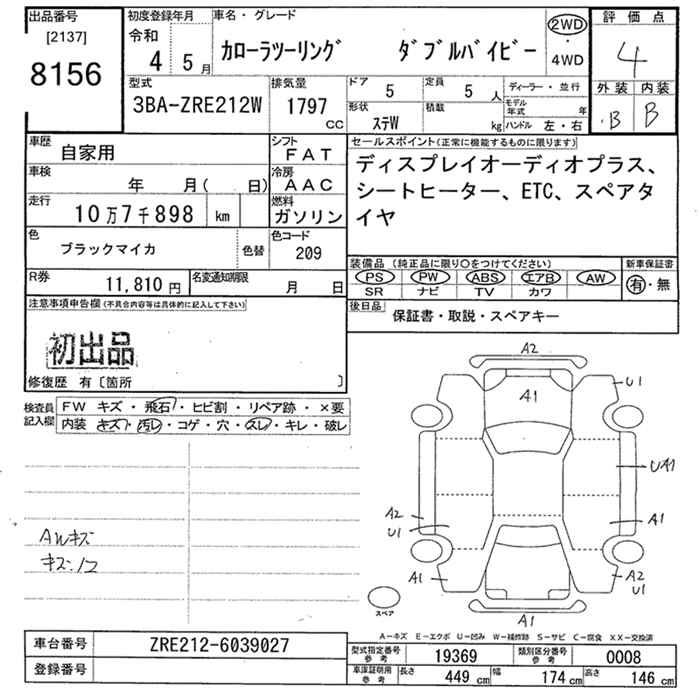 出品番号
[2137]
8156
初度登録年月
令和
4 5月
車名・グレード
カローラツーリング ダブルバイビー
2WD
・
4WD
評価点
4
外装 内装
B B
型式
3BA-ZRE212W
排気量
1797
CC
ドア
5
定員
5 人
形状
ステW
積載
kg
ディーラー・並行
モデル年式 年
ハンドル 左・右
車歴
自家用
シフト
FAT
車検
年 月( 日)
冷房
AAC
走行
10万7千898 km
燃料
ガソリン
色
ブラックマイカ
色替
色コード
209
R券
11,810 円
名変通知期限
月 日
セールスポイント(正常に機能するものに限ります)
ディスプレイオーディオプラス、
シートヒーター、ETC、スペアタ
イヤ
装備品 (純正品に限り○をつけてください)
PS PW ABS エアB AW
SR ナビ TV カワ
新車保証書
有・無
後日品
保証書・取説・スペアキー
注意事項申告欄(不具合内容等は具体的に記入して下さい)
初出品
修復歴 有〔箇所 〕
検査員
記入欄
FW キズ・飛石・ヒビ割・リペア跡・×要
内装 キズ・汚レ・コゲ・穴・スレ・キレ・破レ
AWキズ
A2
A1
U1
UA1
A2
U1
A1
A1
A2
U1
A1
スペア
A−キズ E−エクボ U−凹み W−補修跡 S−サビ C−腐食 XX−交換済
車台番号
ZRE212-6039027
登録番号
型式指定番号
参考
19369
類別区分番号
参考
0008
車庫証明用
参考
長さ
449 cm
幅
174 cm
高さ
146 cm